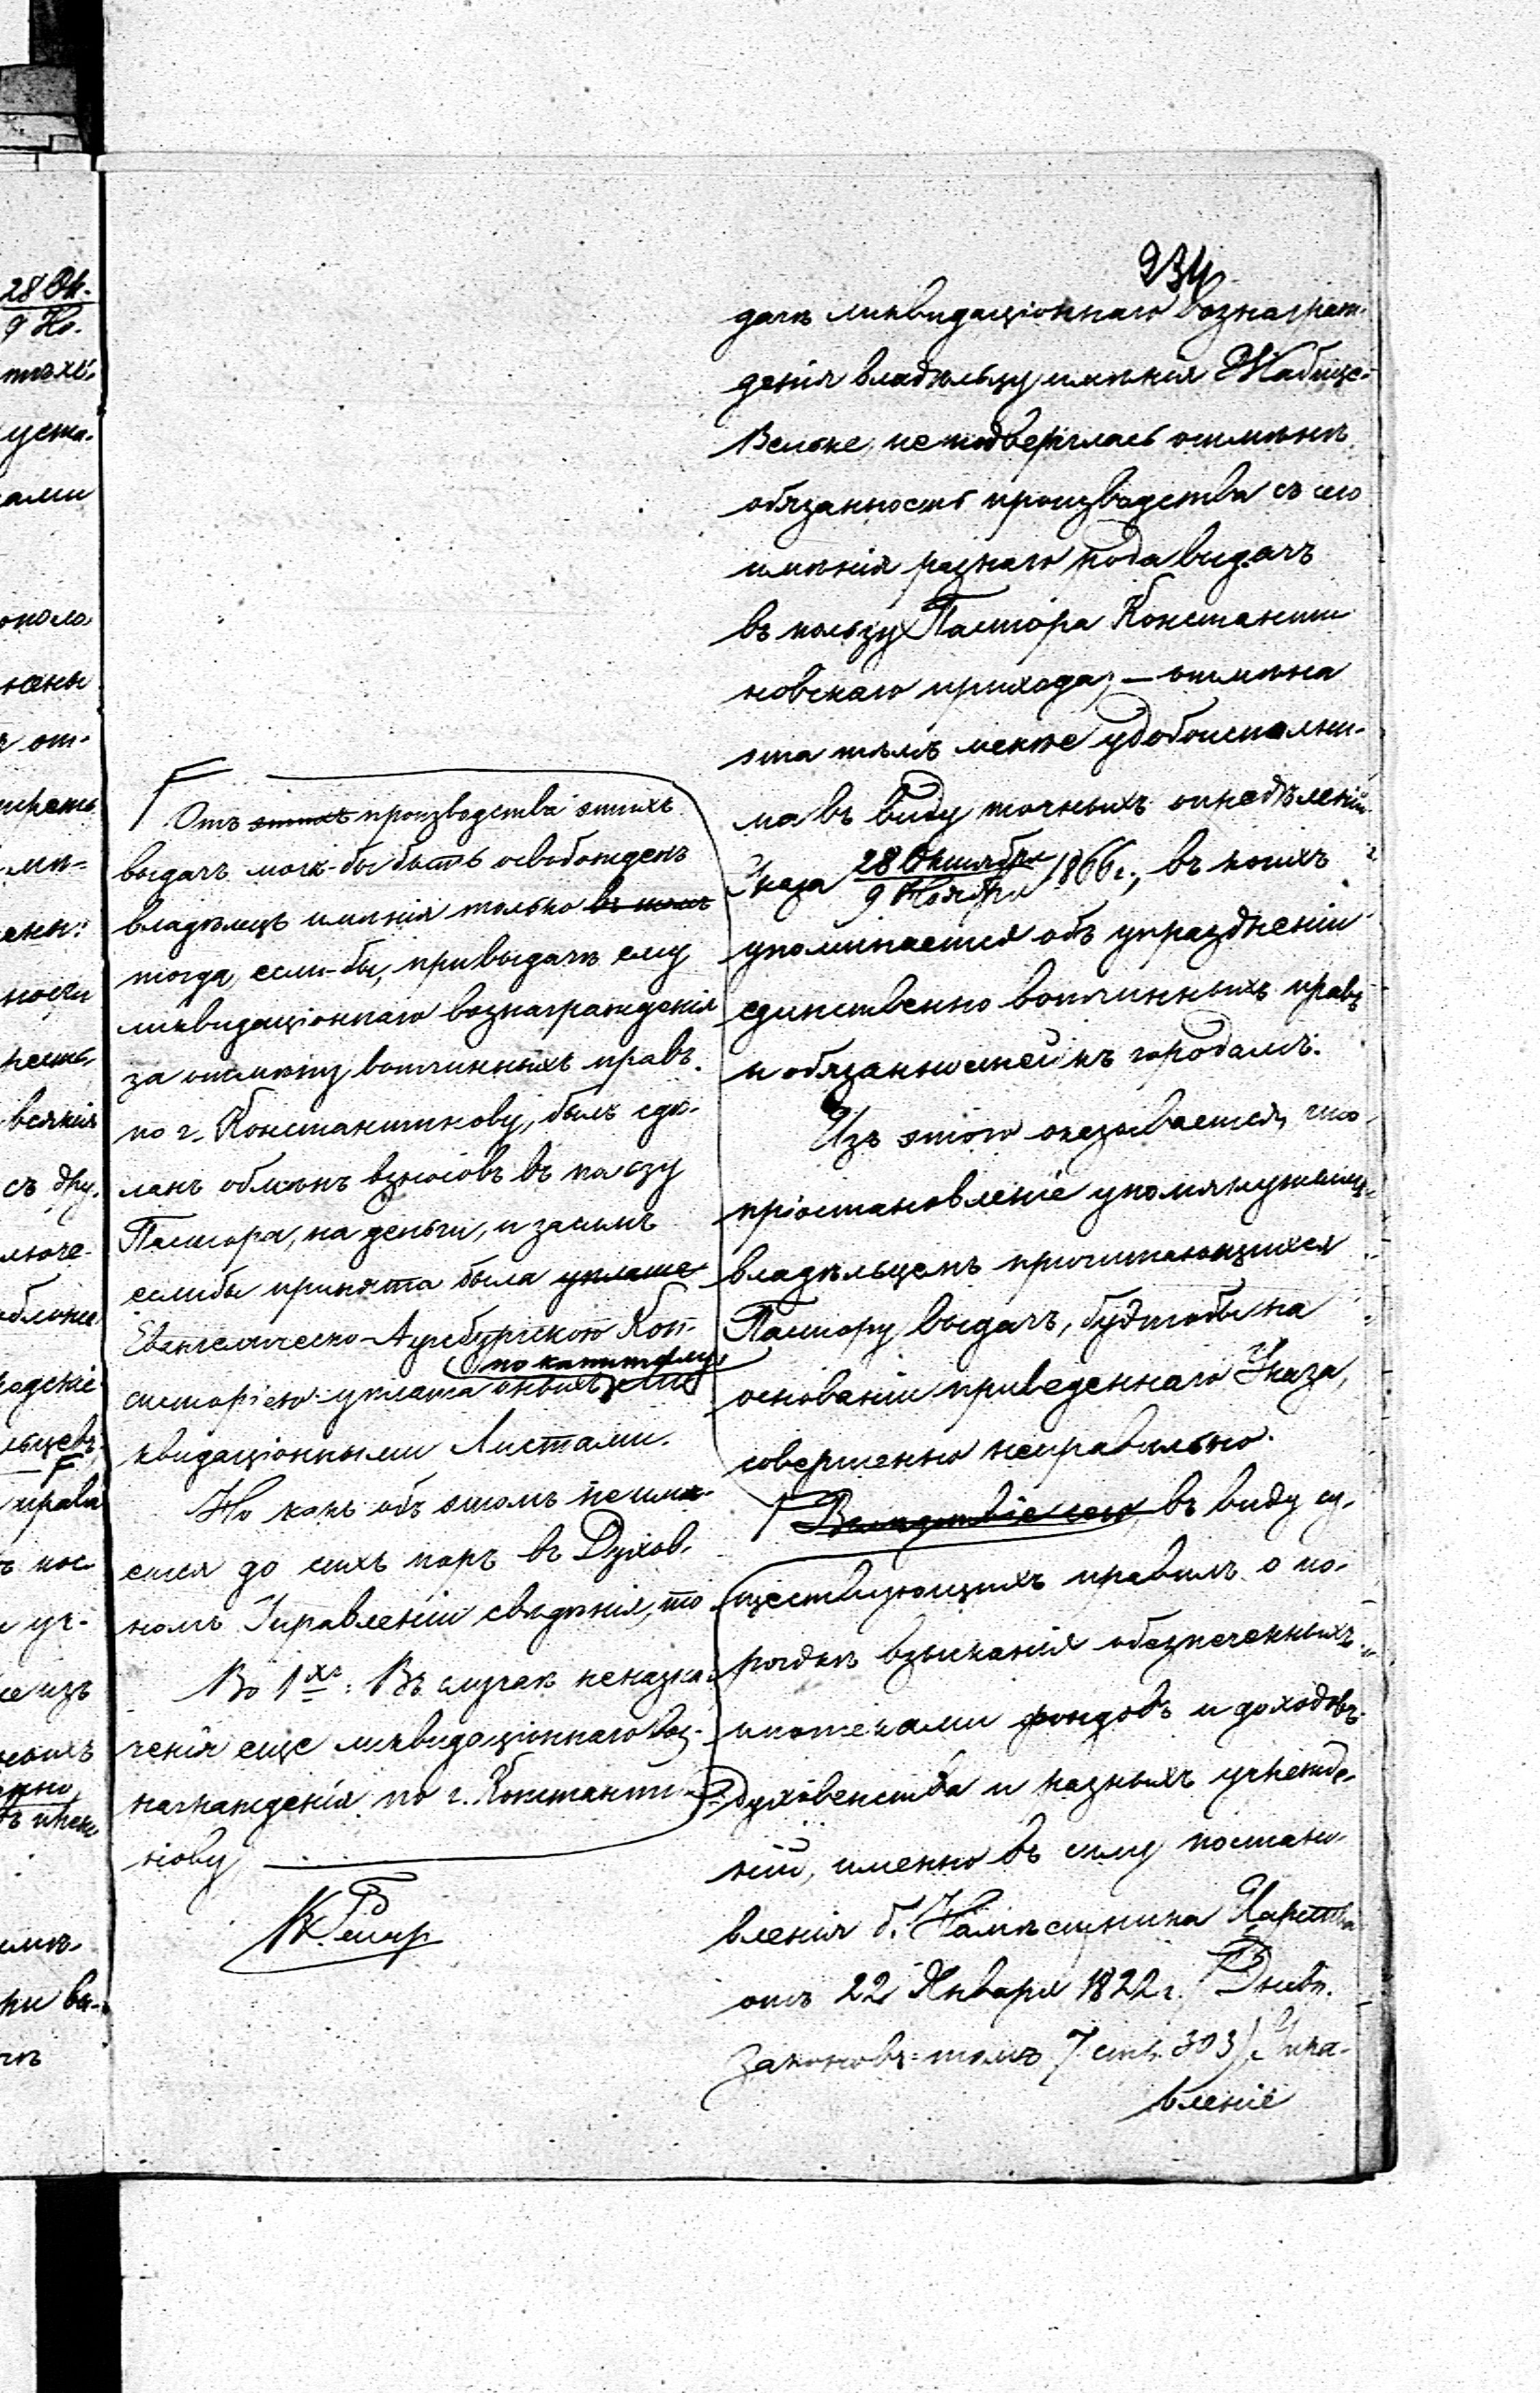 234
дачѣ ликвидаціоннаго вознаграж-
денія владѣльцу имѣнія Жабице-
Вельке, не подверглась отмѣнѣ
обязанность производства съ сего
имѣнія разнаго рода выдачъ
въ пользу Пастора Константи
новскаго прихода; — отмѣна
эта тѣмъ менѣе удобоисполни-
ма въ виду точныхъ опредѣленій
Указа 28 Октября / 9 Ноября 1866 г., въ коихъ
упоминается объ упраздненіи
единственно вотчинныхъ правъ
и обязанностей къ городамъ.
Изъ этого оказывается, что
пріостановленіе упомянутымъ
владѣльцемъ причитающихся
Пастору выдачъ, будто бы на
основаніи приведеннаго Указа,
совершенно неправильно.
Вслѣдствіе сего въ виду су-
ществующихъ правилъ о по-
рядкѣ взысканія обезпеченныхъ
ипотеками фондовъ и доходовъ
духовенства и казныхъ учрежде-
ній, именно въ силу постано-
вленія б. Намѣстника Царства
отъ 22 Января 1822 г. (Дневн.
Законовъ томъ 7 стр. 303) Упра-
вленіе
Отъ этихъ производства этихъ
выдачъ могъ-бы быть освобожденъ
владѣлецъ имѣнія только въ томъ
тогда, если-бы, при выдачѣ ему
ликвидаціоннаго вознагражденія
за отмѣну вотчинныхъ правъ
по г. Константинову, былъ сдѣ-
ланъ обмѣнъ взносовъ въ пользу
Пастора, на деньги, и засимъ
если бы принята была уплате
Евангелическо-Аугсбургскою Кон-
по капиталу
систоріею уплата оныхъ Ли
квидаціонными Листами.
Но какъ объ этомъ не имѣ-
ется до сихъ поръ въ Духов-
номъ Управленіи свѣдѣнія, то
Во 1хъ: Въ случаѣ неназна-
ченія еще ликвидаціоннаго воз-
награжденія по г. Константи-
нову
28 Ок.
9 Но.
уста-
ами
ополо
от-
всякія
съ дру-
права
изъ